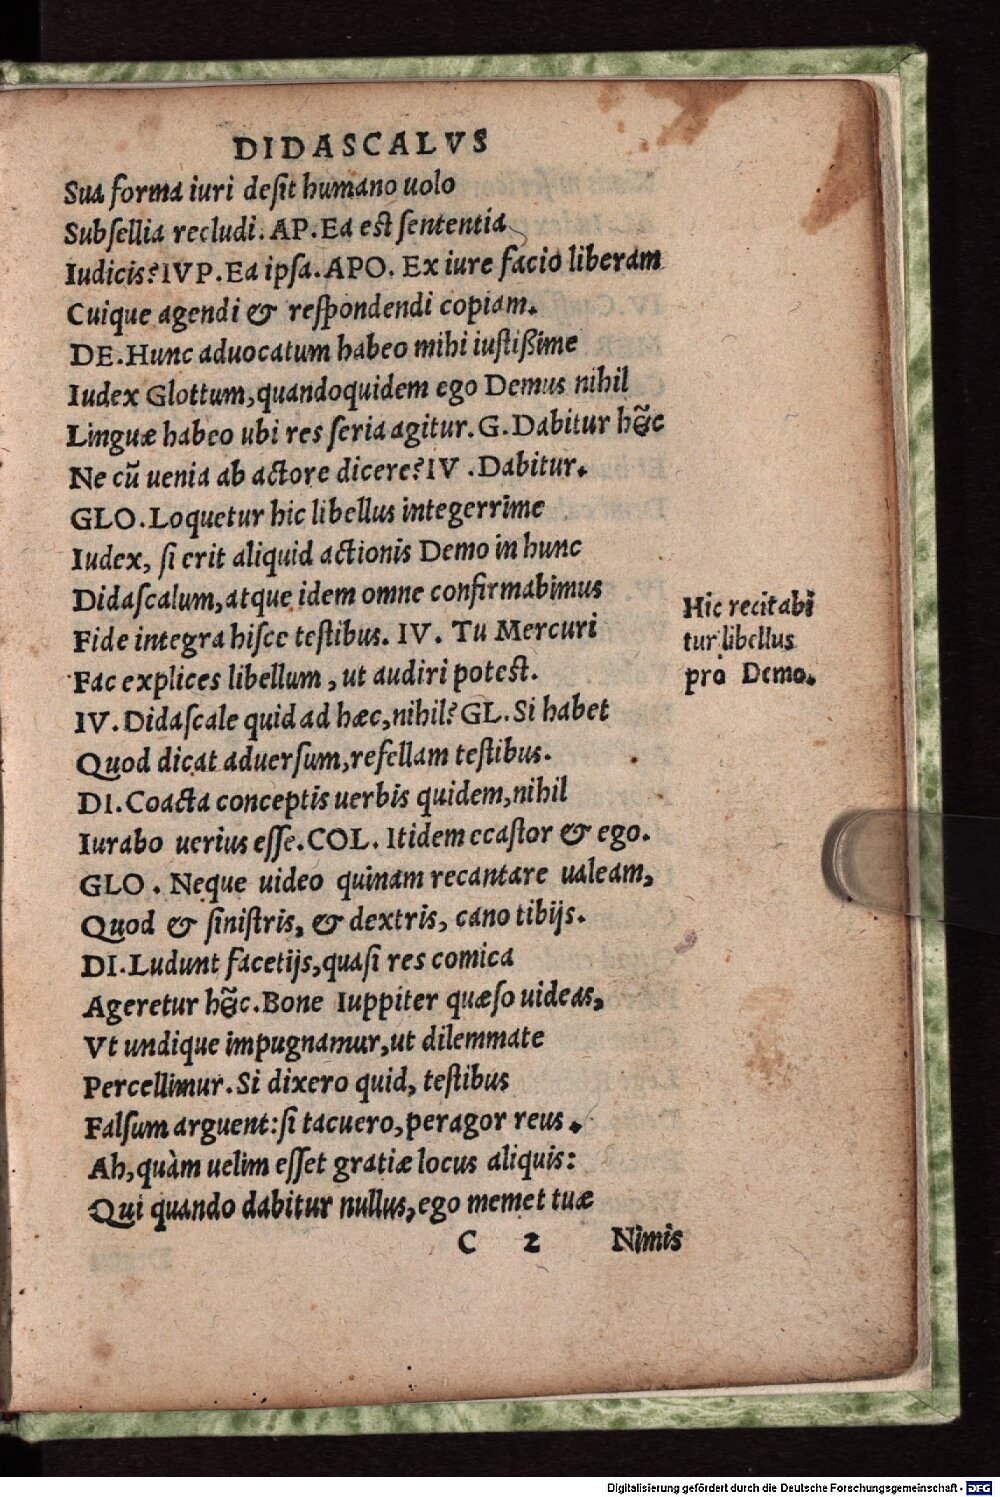 DIDASCALVS
Sua forma iuri desit humano uolo
Subsellia recludi. AP. Ea est sententia
Iudicis? IVP. Ea ipsa. APO. Ex iure facio liberam
Cuique agendi & respondendi copiam.
DE. Hunc aduocatum habeo mihi iustißime
Iudex Glottum, quandoquidem ego Demus nihil
Linguæ habeo ubi res seria agitur. G. Dabitur hæ̃c
Ne cũ uenia ab actore dicere? IV. Dabitur.
GLO. Loquetur hic libellus integerrime
Iudex, si erit aliquid actionis Demo in hunc
Didascalum, atque idem omne confirmabimus
Fide integra hisce testibus. IV. Tu Mercuri
Fac explices libellum, ut audiri potest.
Hic recitabĩ
tur libellus
pro Demo.
IV. Didascale quid ad hæc, nihil? GL. Si habet
Quod dicat aduersum, refellam testibus.
DI. Coacta conceptis uerbis quidem, nihil
Iurabo uerius esse. COL. Itidem ecastor & ego.
GLO. Neque uideo quinam recantare ualeam,
Quod & sinistris, & dextris, cano tibijs.
DI. Ludunt facetijs, quasi res comica
Ageretur hæ̃c. Bone Iuppiter quæso uideas,
Vt undique impugnamur, ut dilemmate
Percellimur. Si dixero quid, testibus
Falsum arguent: si tacuero, peragor reus.
Ah, quàm uelim esset gratiæ locus aliquis:
Qui quando dabitur nullus, ego memet tuæ
C 2 Nimis
Digitalisierung gefördert durch die Deutsche Forschungsgemeinschaft - DFG